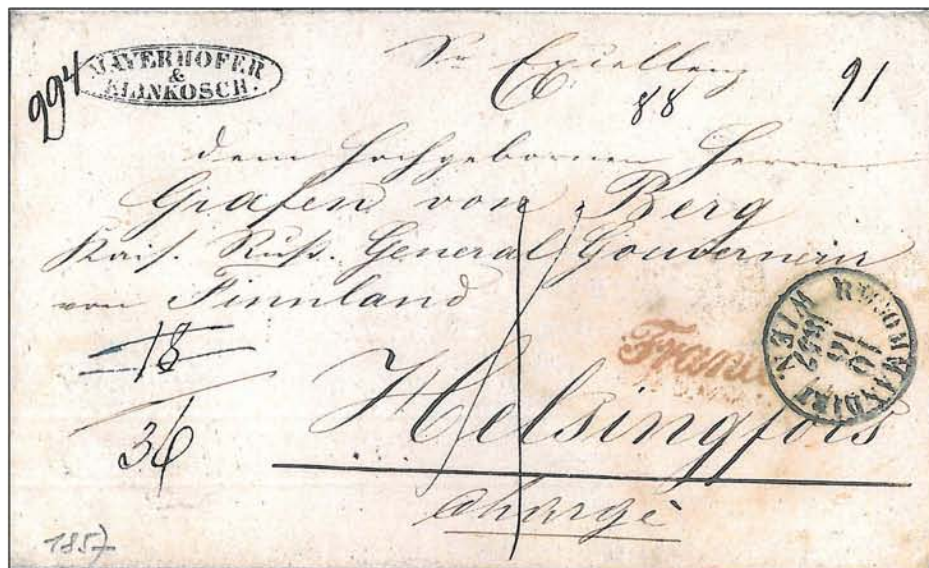 MAYERHOFER
&
KLINKOSCH.
294
Sr Excellenz
88
91
dem Hochgebornen Herrn
Grafen von Berg
Kais. Russ. General Gouverneur
von Finnland
18
36
Franco
RECOMMANDIRT WIEN
10
12
1857
Helsingfors
Chargè
1857